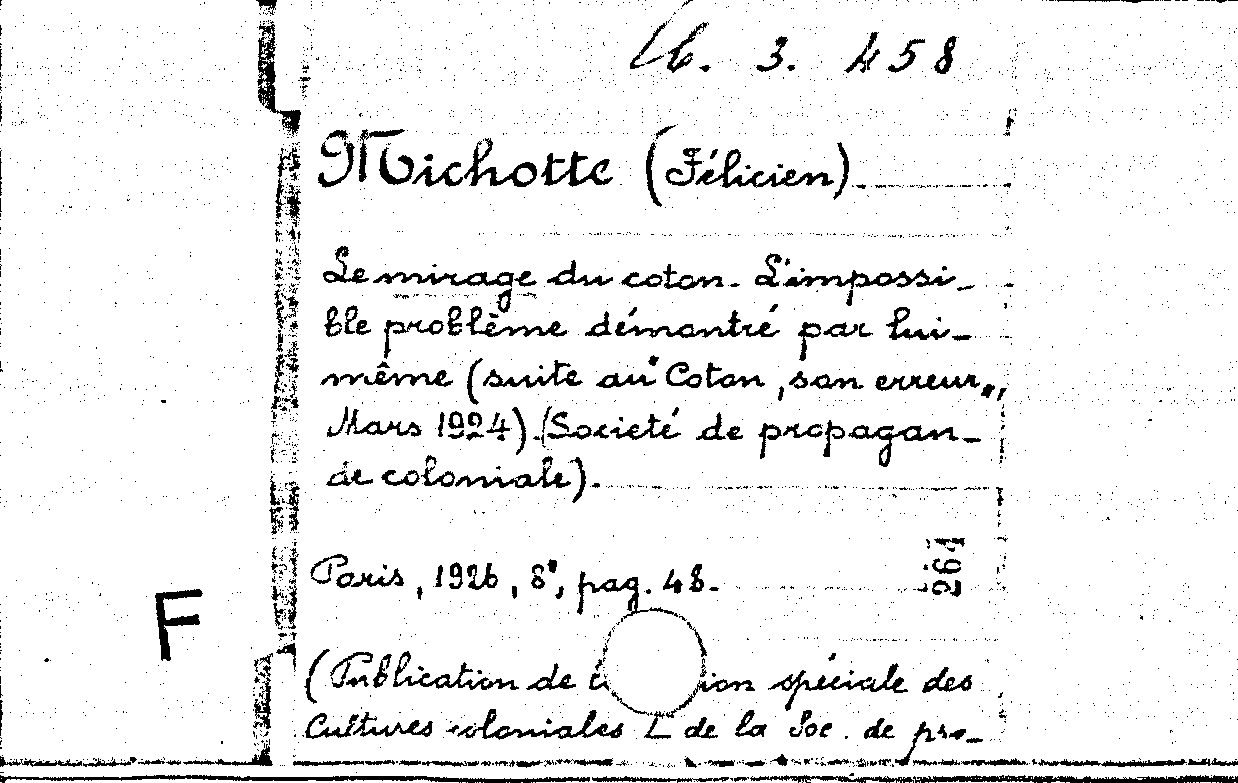 M. 3. 458
Michotte (Félicien).
Le mirage du coton. L'impossi-
ble problème démontré par lui-
même (suite au "Coton, son erreur",
Mars 1924). (Societé de propagan-
de coloniale).
Paris, 1926, 8°, pag. 48.
264
F
(Publication de ion spéciale des
Cultures coloniales de la Soc. de pro-